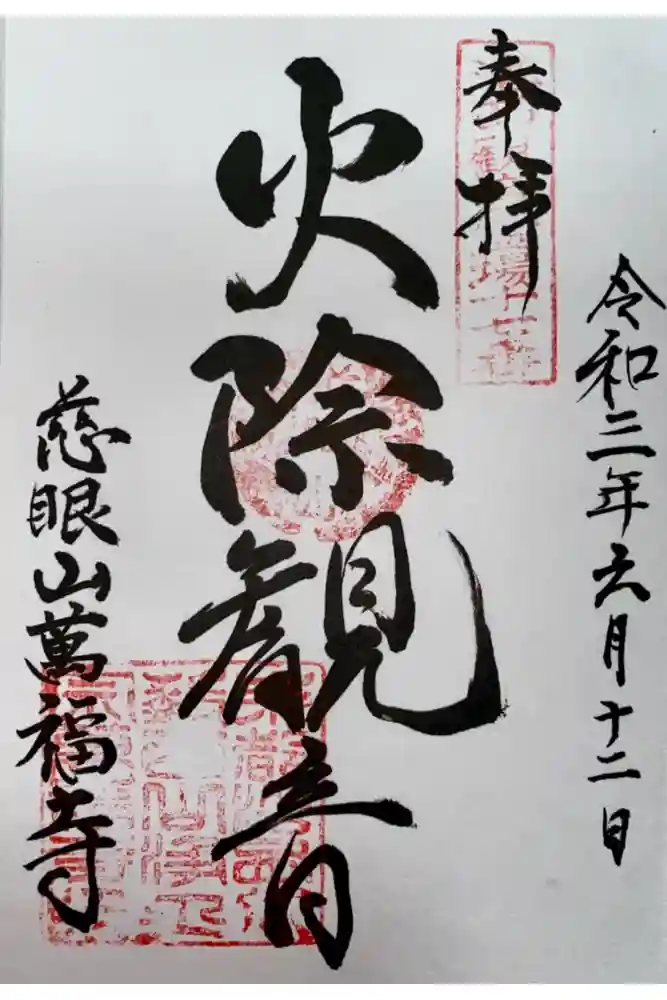 令和三年六月十二日
奉拝
火除観音
慈眼山萬福寺